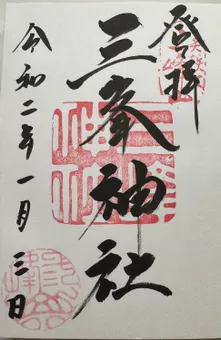 登拝
三峯神社
令和二年一月三日